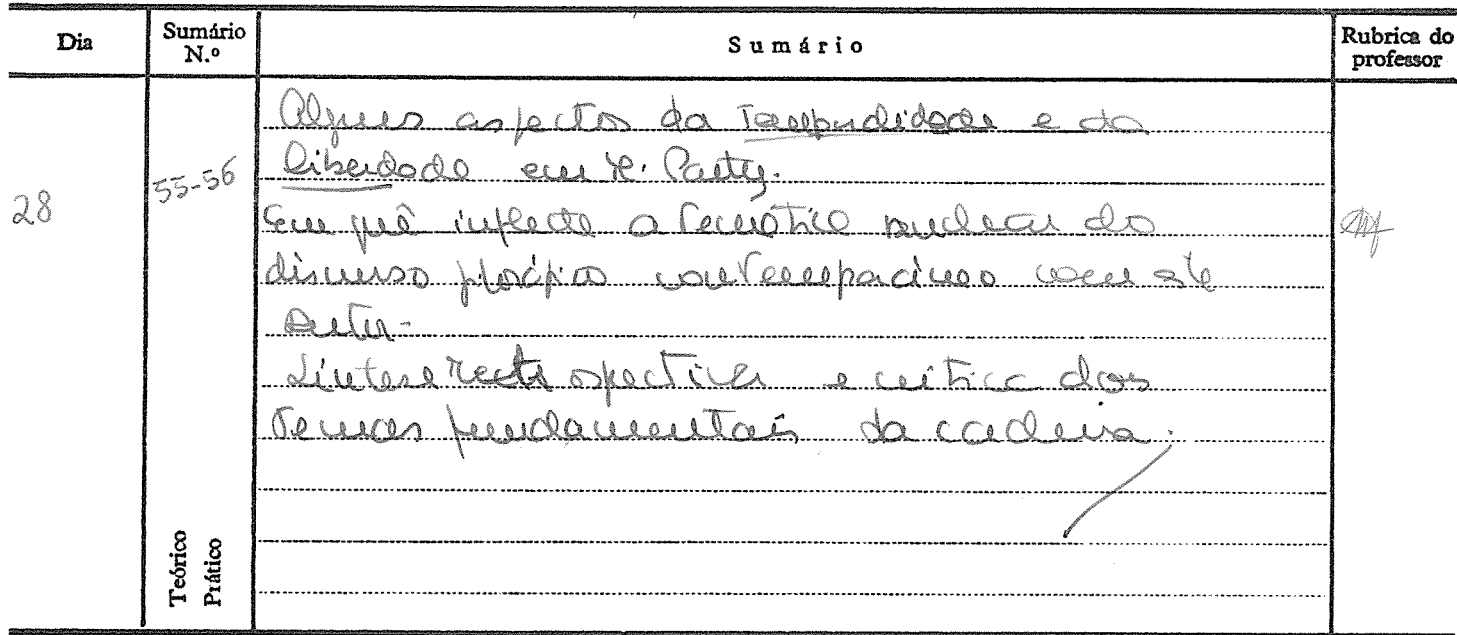 Dia
Sumário N.º
Sumário
Rubrica do professor
28
55-56
Teórico
Prático
Alguns aspectos da Temporalidade e da
Liberdade em M. Ponty.
Em quê inflecte a temática nuclear do
discurso filosófico contemporâneo com este
Autor.
Síntese rectrospectiva e crítica dos
temas fundamentais da cadeira.